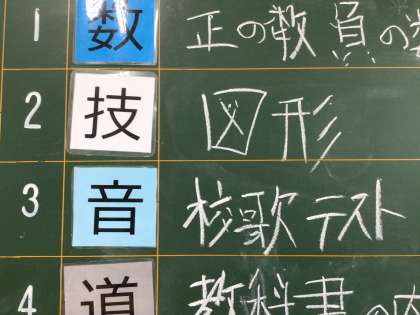 1 数 正の数負の
2 技 図形
3 音 校歌テスト
4 道 教科書の